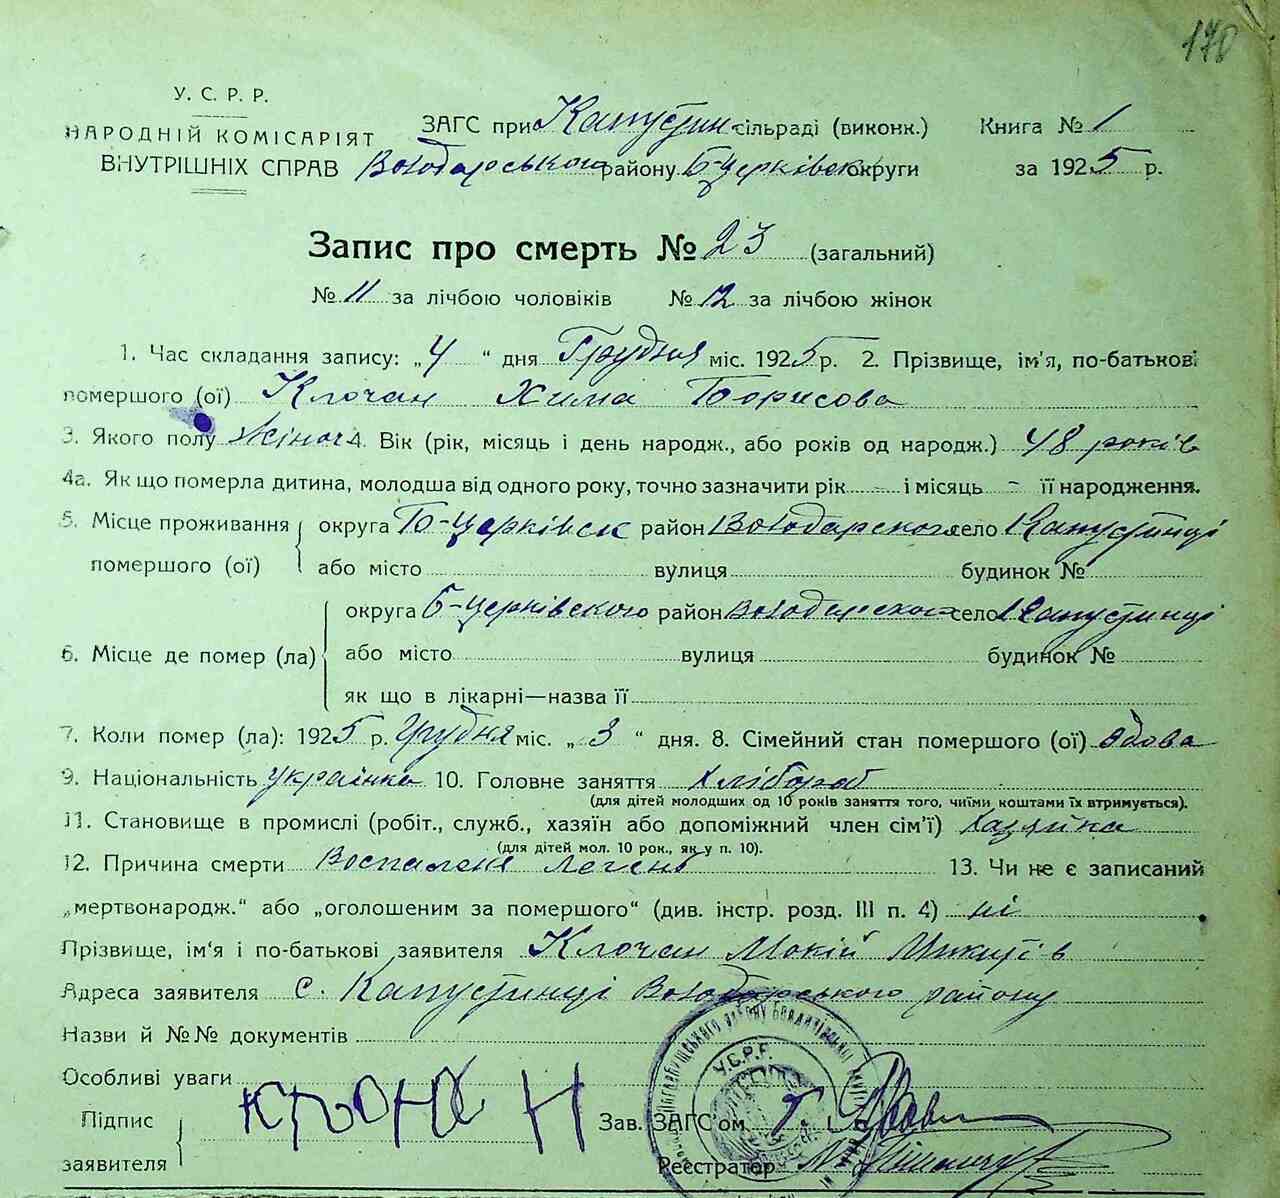 170
У. С. Р. Р.
НАРОДНІЙ КОМІСАРІЯТ
ВНУТРІШНІХ СПРАВ
ЗАГС при Капустин сільраді (виконк.) Книга № 1
Володарського району Б-Церківськ округи за 1925 р.
Запис про смерть № 23 (загальний)
№ 11 за лічбою чоловіків № 12 за лічбою жінок
1. Час складання запису: „4“ дня Грудня міс. 1925 р. 2. Прізвище, ім'я, по-батькові
помершого (ої) Клочан Хима Борисова
3. Якого полу жіноч 4. Вік (рік, місяць і день народж., або років од народж.) 48 років
4а. Як що померла дитина, молодша від одного року, точно зазначити рік - і місяць - її народження.
5. Місце проживання помершого (ої) округа Б-Церківськ район Володарського село Капустинці
або місто вулиця будинок №
6. Місце де помер (ла) округа Б-Церківського район Володарського село Капустинці
або місто вулиця будинок №
як що в лікарні—назва її
7. Коли помер (ла): 1925 р. Грудня міс. „3“ дня. 8. Сімейний стан помершого (ої) вдова
9. Національність Українка 10. Головне заняття Хлібороб
(для дітей молодших од 10 років заняття того, чиїми коштами їх втримується).
11. Становище в промислі (робіт., служб., хазяїн або допоміжний член сім'ї) Хазяйка
(для дітей мол. 10 рок., як у п. 10).
12. Причина смерти Воспаленя легень 13. Чи не є записаний
„мертвонародж.“ або „оголошеним за помершого“ (див. інстр. розд. III п. 4) ні
Прізвище, ім'я і по-батькові заявителя Клочан Мокій Микитів
Адреса заявителя с. Капустинці Володарського району
Назви й №№ документів
Особливі уваги
Підпис
заявителя
Зав. ЗАГС'ом
Реєстратор
У.С.Р.Р.